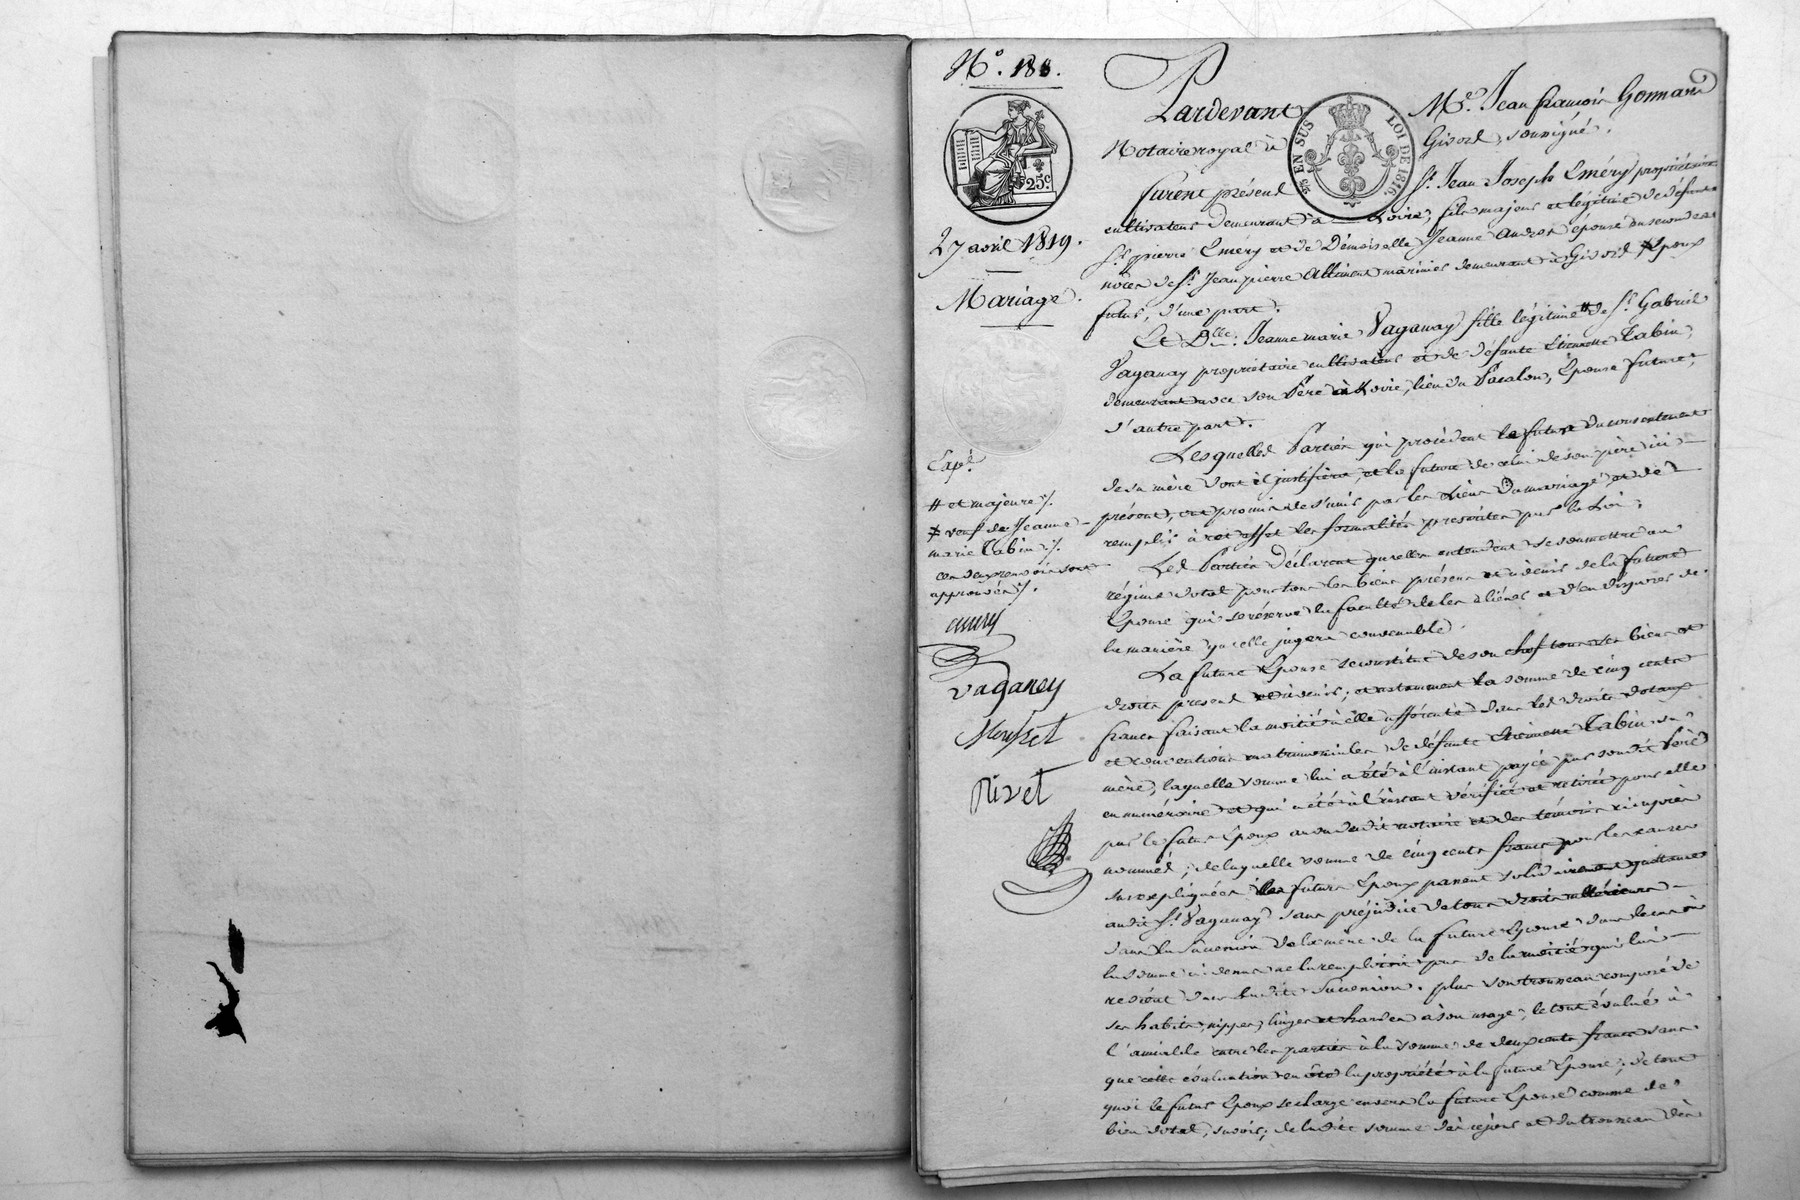 N.º 188.
25c.
27 avril 1819.
Mariage.
Expé.
# et majeure ./.
≠ veuf de Jeanne
marie Tabin ./.
ces deux renvois sont
approuvés ./.
emery
vaganey
Mousset
Rivet
Pardevant Me. Jean françois Gonnard
EN SUS LOI DE 1816.
Notaire royal à Givord, soussigné.
furent présens Sr. Jean Joseph Eméry propriétaire
cultivateur demeurant à Loire, fils majeur et légitime de défunt
Sr. pierre Eméry et de Démoiselle Jeanne Andros épouse en secondes
nôces de Sr. Jean pierre Alliment marinier demeurant à Givord ≠ Epoux
futur, d'une part.
Et Dlle. Jeanne marie Vaganay fille légitime # de Sr. Gabriel
Vaganay propriétaire cultivateur et de défunte Etiennette Tabin,
demeurant avec son Père à Loire, lieu du Pacalon, Epouse future,
d'autre part.
Lesquelles Parties qui procèdent le futur du consentement
de sa mère dont il justifiera, et la future de celui de son père ici
présent, ont promis de s'unir par les Liens du mariage, et de
remplir à cet effet les formalités prescrites par la Loi.
Les Parties déclarent qu'elles entendent se soumettre au
régime dotal pour tous les biens présens et à venir de la future
Epouse qui se réserve la faculté de les aliéner et d'en disposer de
la manière qu'elle jugera convenable.
La future Epouse se constitue de son chef tous ses biens et
droits présens et à venir, et notamment la somme de cinq cents
francs faisant la moitié à elle afférente dans les droits dotaux
et conventions matrimoniales de défunte Etiennette Tabin sa
mère, laquelle somme lui a été à l'instant payée par son dit Père
en numéraire et qui a été à l'instant vérifiée et retirée par elle
par le futur Epoux au vu du dit notaire et des témoins ci après
nommés; de laquelle somme de cinq cents francs pour les causes
sus expliquées les futurs Epoux passent solidairement quittance
audit Sr. Vaganay sans préjudice de tous droits ultérieurs
dans la succession de la mère de la future Epouse dans le cas où
la somme ci dessus ne la rempliroit pas de la moitié qui lui
revient dans ladite succession. plus son trousseau composé de
ses habits, nippes, linges et hardes à son usage, le tout évalué à
l'amiable entre les parties à la somme de deux cents francs sans
que cette évaluation en ôte la propriété à la future Epouse; de tout
quoi le futur Epoux se charge envers la future Epouse comme de
bien dotal, savoir; de ladite somme dès ce jour et du trousseau dès